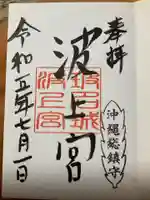 奉拝
沖縄総鎮守
波上宮
波上宮
令和五年七月一日